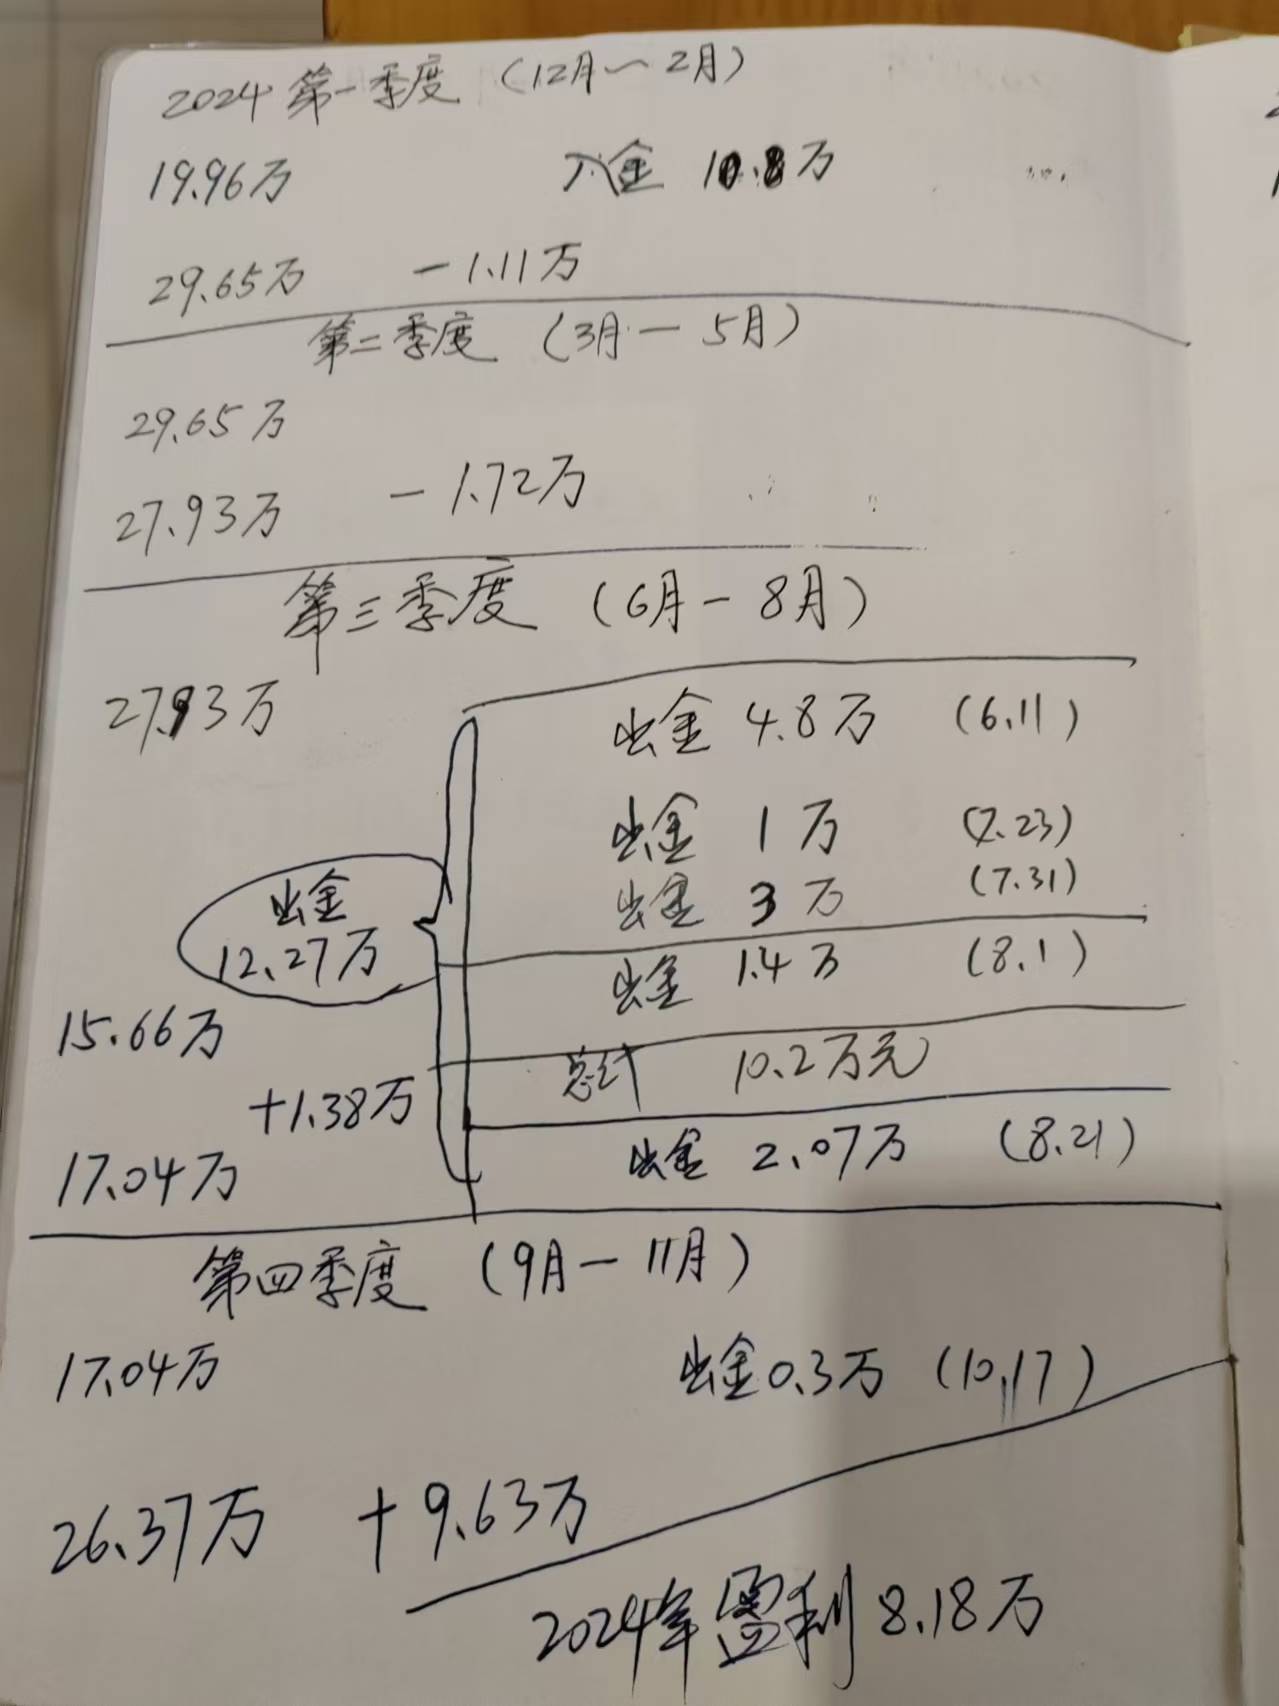 2024 第一季度 (12月－2月)
19.96万 入金 10.8万
29.65万 －1.11万
第二季度 (3月－5月)
29.65万
27.93万 －1.72万
第三季度 (6月－8月)
27.93万 出金 4.8万 (6.11)
出金 1万 (7.23)
出金 3万 (7.31)
出金
12.27万
出金 1.4万 (8.1)
15.66万
总计 10.2万元
+1.38万
17.04万 出金 2.07万 (8.21)
第四季度 (9月－11月)
17.04万 出金0.3万 (10.17)
26.37万 +9.63万
2024年盈利8.18万